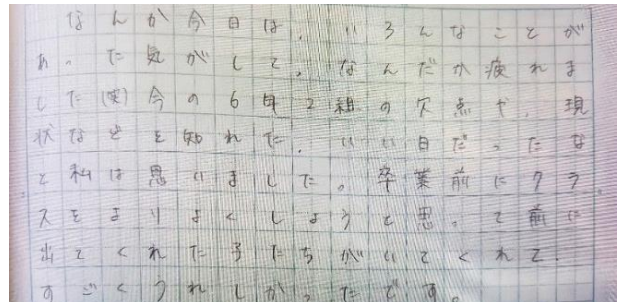 なんか今日は、いろんなことが
あった気がして、なんだか疲れま
した(笑)今の6年2組の欠点や、現
状などを知れた、いい日だったな
と私は思いました。卒業前にクラ
スをよりよくしようと思って前に
出てくれた子たちがいてくれて、
すごくうれしかったです。